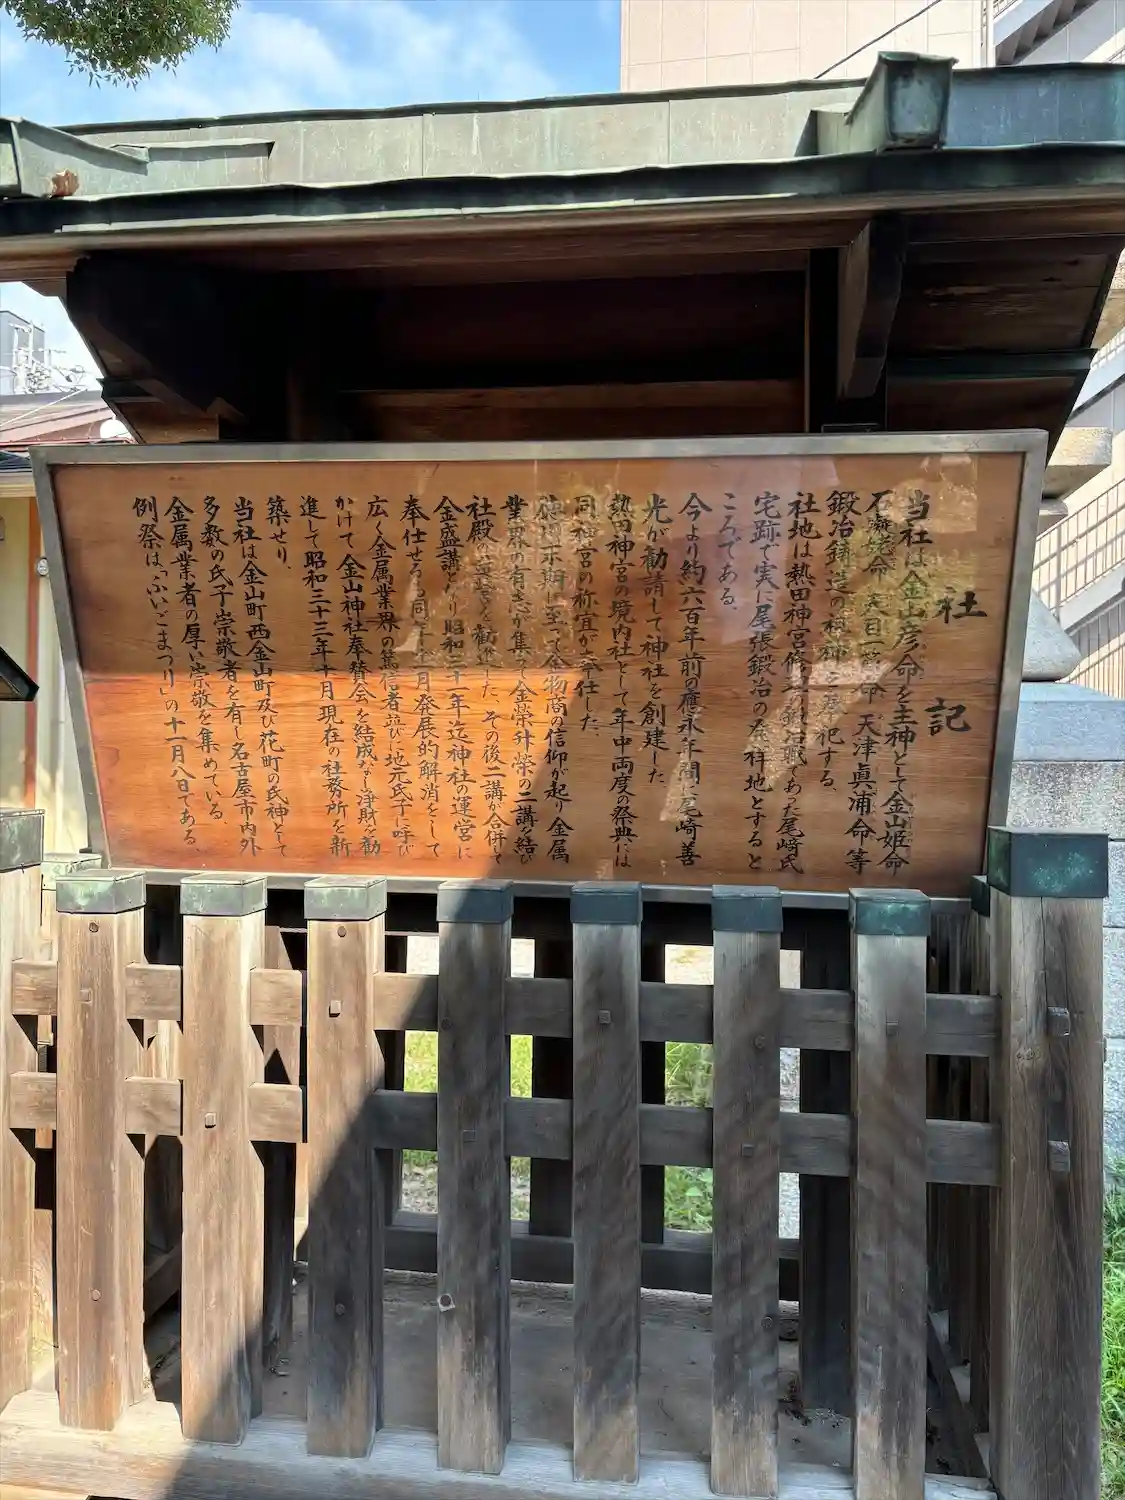 社記
当社は金山彦命を主神として金山姫命
石凝姥命 天目一箇命 天津眞浦命等
鍛冶鋳造の祖神を奉祀する、
社地は熱田神宮修 の鍛冶職であった尾﨑氏
宅跡で実に尾張鍛冶の発祥地とすると
ころである、
今より約六百年前の應永年間に尾崎善
光が勧請して神社を創建した
熱田神宮の境内社として年中両度の祭典には
同神宮の祢宜が奉仕した、
徳川末期に至って金物商の信仰が起り金属
業界の有志が集って金栄升栄の二講を結び
社殿の 等を勧進した、その後二講が合併して
金盛講となり昭和二十一年迄神社の運営に
奉仕せるも同年十一月発展的解消をして
広く金属業界の篤信者並びに地元氏子に呼び
かけて金山神社奉賛会を結成なし浄財を勧
進して昭和三十三年十月現在の社務所を新
築せり、
当社は金山町西金山町及び花町の氏神として
多数の氏子崇敬者を有し名古屋市内外
金属業者の厚い崇敬を集めている、
例祭は「ふいごまつり」の十一月八日である、